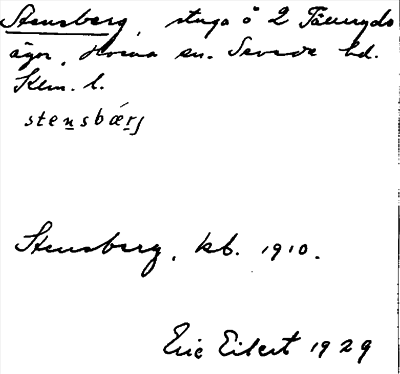 Stensberg, stuga å 2 Fälleryds
ägor, Horna sn. Sevede hd.
Klm. l.
stensbærj
Stensberg, kb. 1910.
Eric Eilert 1929